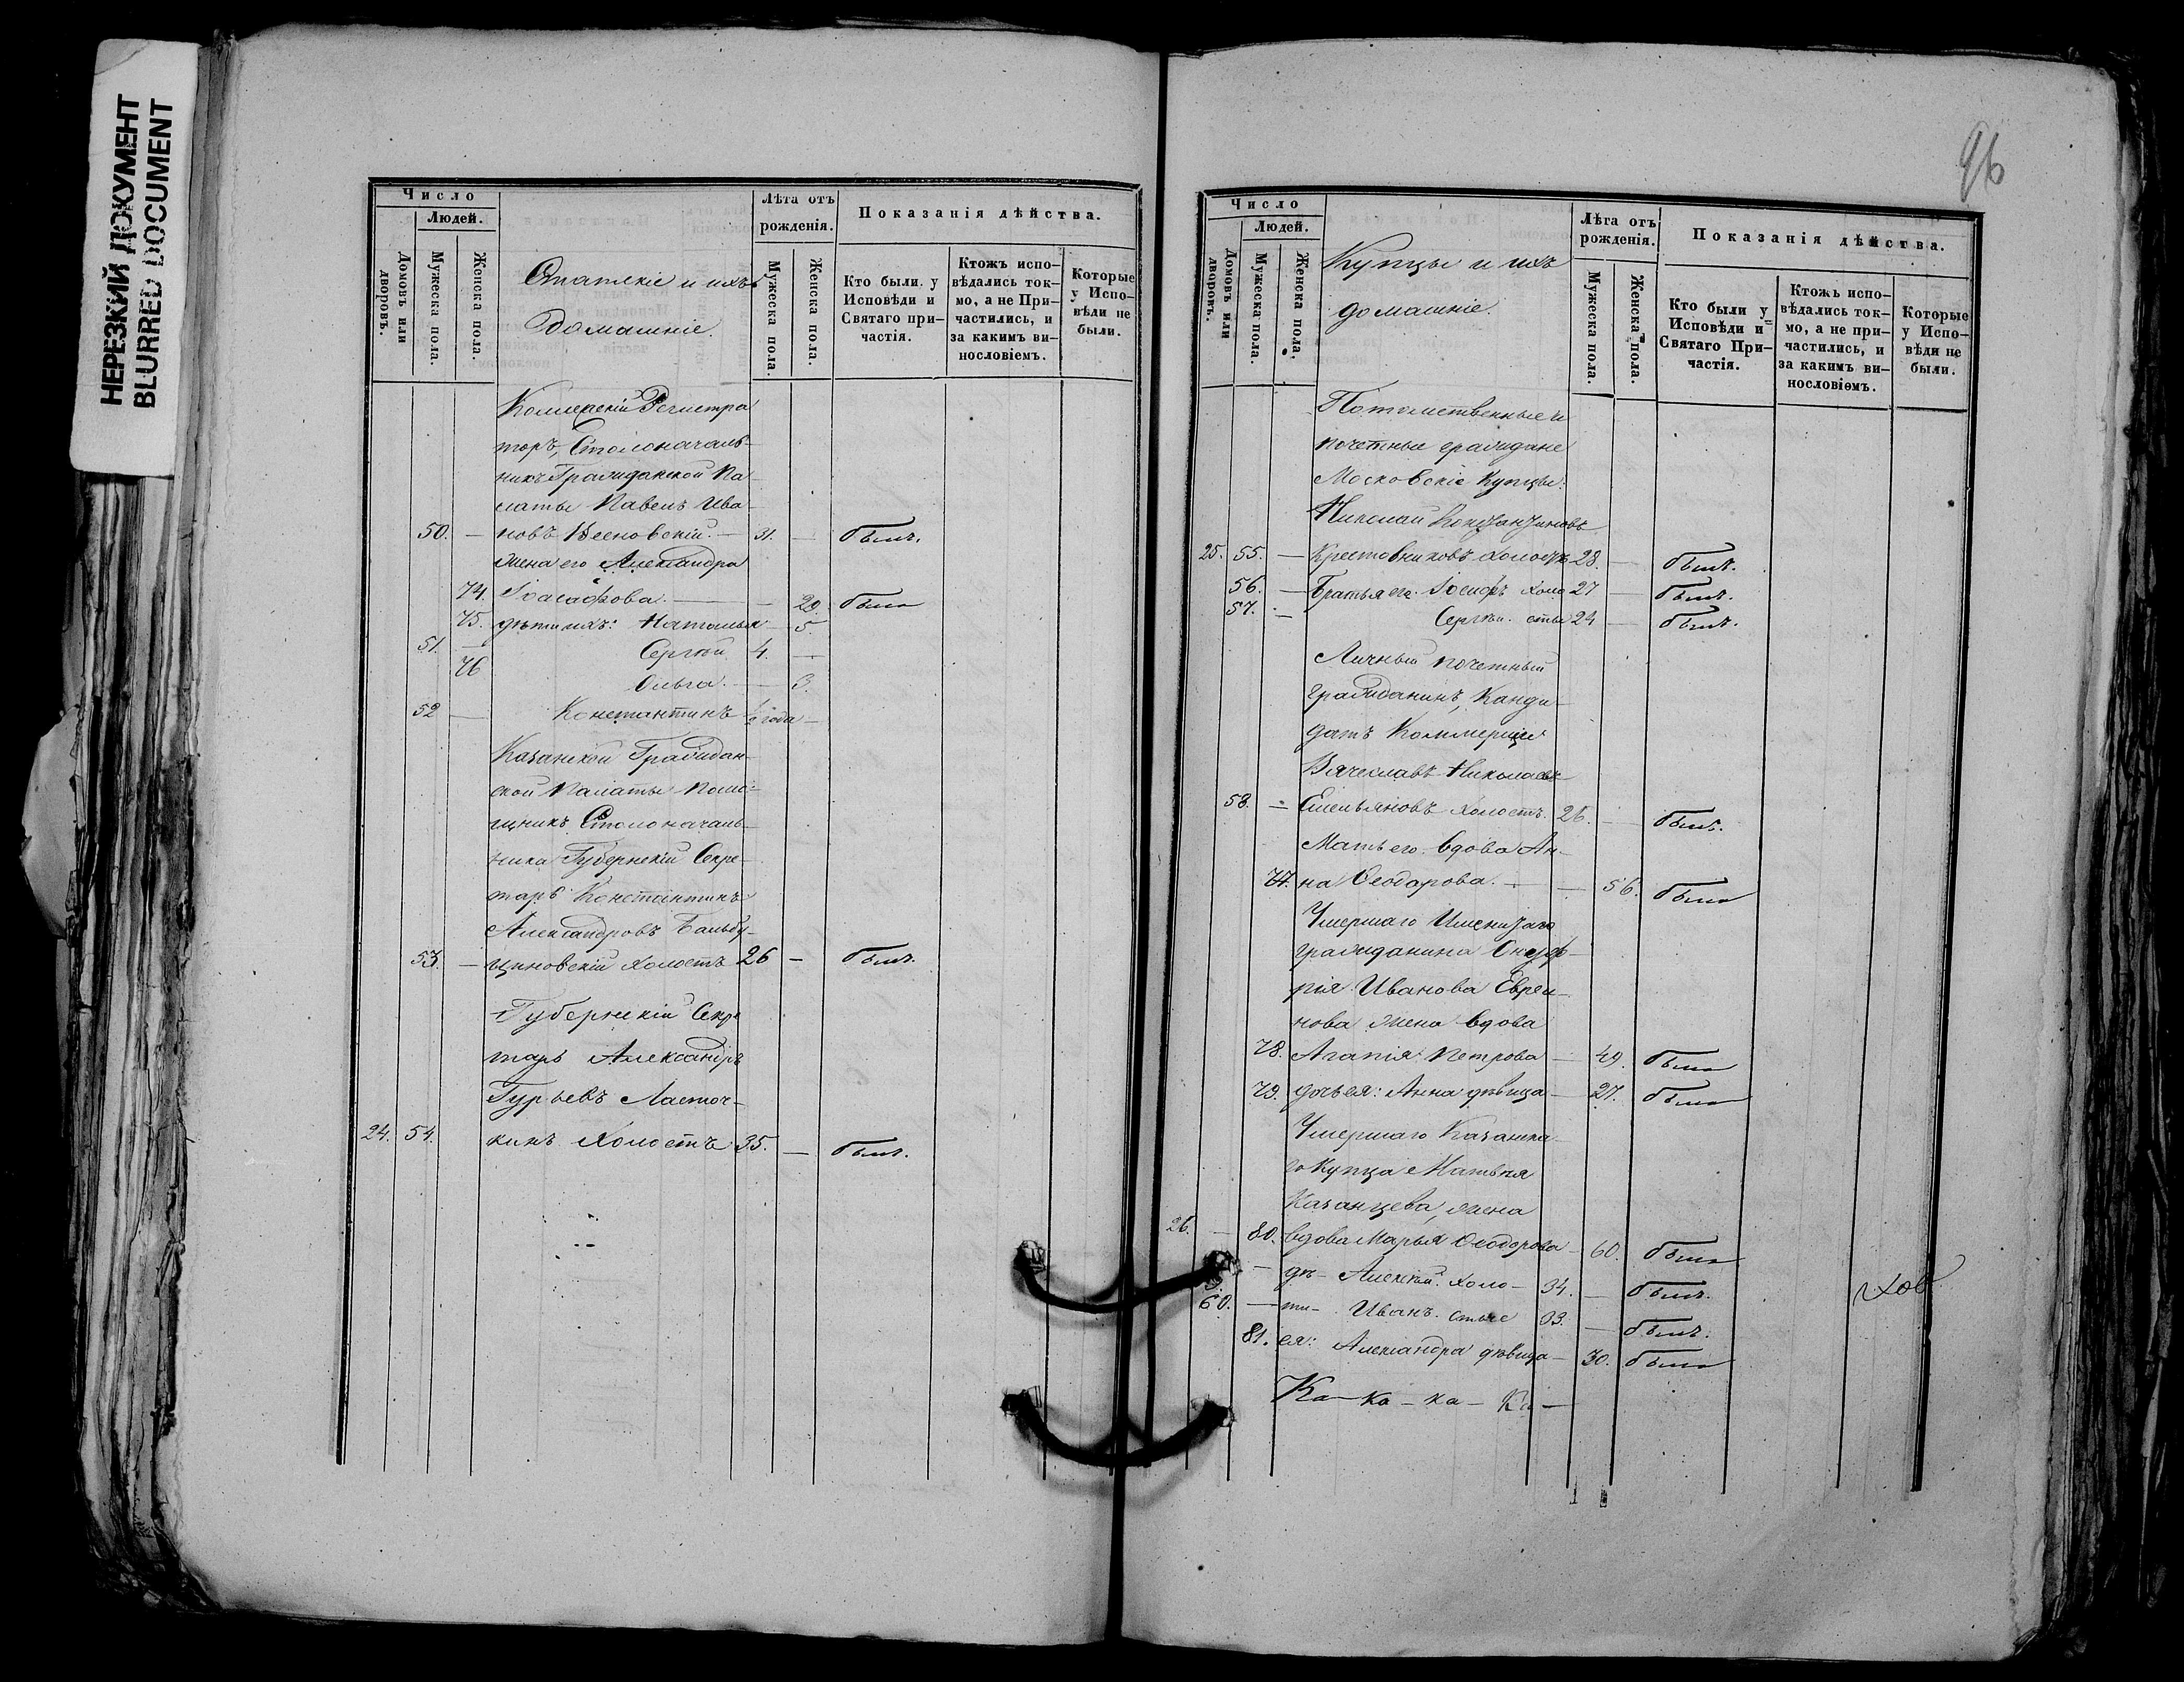 НЕРЕЗКИЙ ДОКУМЕНТ
BLURRED DOCUMENT
Число
Людей.
Домовъ или дворовъ.
Мужеска пола.
Женска пола.
Статскіе и ихъ
домашніе.
Лѣта отъ рожденія.
Мужеска пола.
Женска пола.
Показанія дѣйства.
Кто были у Исповѣди и Святаго причастія.
Ктожъ исповѣдались токмо, а не Причастились, и за какимъ винословіемъ.
Которые у Исповѣди не были.
Коллежскій Регистра
торъ, Столоначаль-
никъ Гражданской Па-
латы Павелъ Ива-
50. — новъ Ясновскій. — 31. — былъ.
Жена его Александра
74. Іоасафова. — — 29. была
75. дѣти ихъ: Наталья — 5.
51. — Сергѣй 4. —
76 Ольга. — 3.
52 — Константинъ ½ года —
Казанской Граждан-
ской Палаты Помо-
щникъ Столоначаль-
ника Губернскій Секре-
тарь Константинъ
Александровъ Бальбу-
53. — циновскій холостъ 26 — былъ.
Губернскій Секре
тарь Александръ
Гурьевъ Ласточ-
24. 54. кинъ холостъ 35. — былъ.
96
Число
Людей.
Домовъ или дворовъ.
Мужеска пола.
Женска пола.
Купцы и ихъ
домашніе.
Лѣта отъ рожденія.
Мужеска пола.
Женска пола.
Показанія дѣйства.
Кто были у Исповѣди и Святаго Причастія.
Ктожъ исповѣдались токмо, а не причастились, и за какимъ винословіемъ.
Которые у Исповѣди не были.
Потомственные и
почетные граждане
Московскіе Купцы:
Николай Константиновъ
25. 55. — Крестовниковъ холостъ 28. — былъ.
56. — Братья его: Іосифъ холо 27 — былъ.
57. — Сергѣй. стые 24 — былъ.
Личный почетный
гражданинъ, Канди-
датъ Коммерціи
Вячеславъ Николаевъ
58. — Емельяновъ холостъ. 26. — былъ.
Мать его вдова Ан-
77. на Ѳеодорова. — — 56. была
Умершаго Именитаго
гражданина Онуф-
рія Иванова Евреи-
нова жена вдова
78. Агапія Петрова — 49. была
79. дочь ея: Анна дѣвица — 27. была
Умершаго Казанска-
го Купца Матвѣя
Казанцева, жена
26. — 80. вдова Марья Ѳеодорова — 60. была
— дѣ- Алексѣй. холо- 34. — былъ.
60. — ти- Иванъ. стые 33. — былъ.
81. ея: Александра дѣвица — 30. была
Ка — ка — ка —